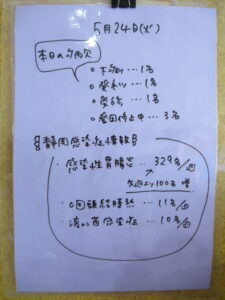 5月24日(火)
本日の病欠
○下痢 … 1名
○発熱 … 1名
○登園停止中 … 3名
静岡感染症情報
・感染性胃腸炎 … 329名/週
先週より100名増
・咽頭結膜熱 … 11名/週
・溶レン菌感染症 … 10名/週